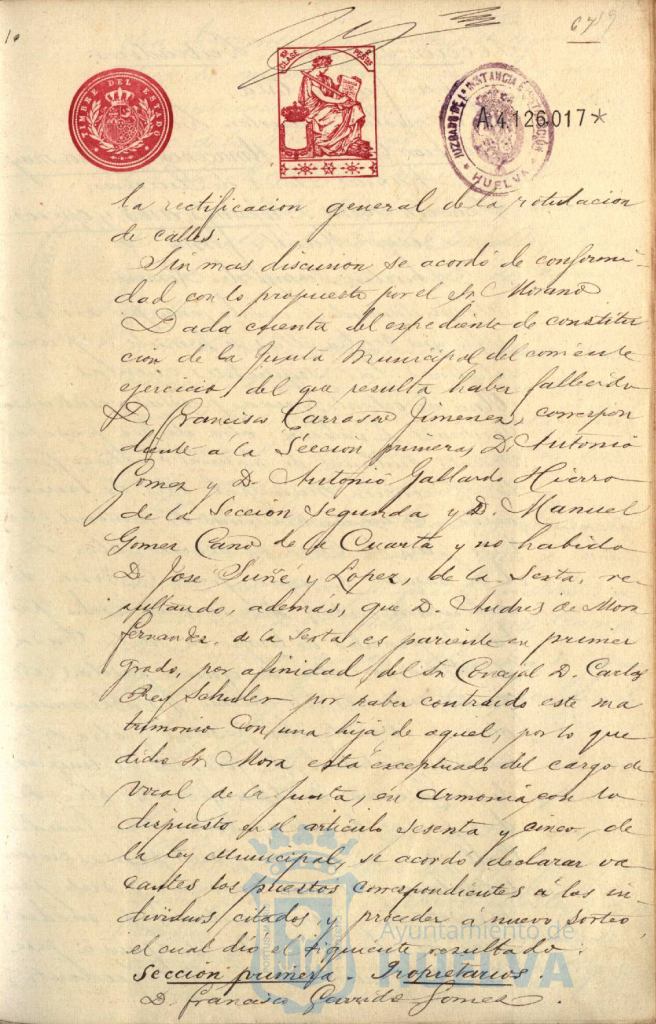 67
TIMBRE DEL ESTADO
CLASE
JUZGADO DE 1ª INSTANCIA E INSTRUCCION
HUELVA
A4.126.017*
la rectificacion general de la rotulacion
de calles.
Sin mas discusion se acordó de conformi-
dad con lo propuesto por el Sr Morano
Dada cuenta del expediente de constitu
cion de la Junta Municipal del corriente
ejercicio, del que resulta haber fallecido
D. Francisco Carrasco Jimenez, correspon
diente á la Sección primera, D. Antonio
Gomez y D. Antonio Gallardo Hierro
de la Sección Segunda y D. Manuel
Gomez Cano de la Cuarta y no habido
D. José Suñé y Lopez, de la Sexta, re-
sultando, además, que D. Andrés de Mora
Fernandez, de la Sexta, es pariente en primer
grado, por afinidad, del Sr Concejal D. Carlos
Rey Schuler por haber contraido este ma
trimonio con una hija de aquel, por lo que
dicho Sr Mora está exceptuado del cargo de
Vocal de la Junta, en armonia con lo
dispuesto en el articulo sesenta y cinco, de
la ley Municipal, se acordó declarar va
cantes los puestos correspondientes á los in-
dividuos citados y proceder á nuevo sorteo,
el cual dió el siguiente resultado:
Sección primera. Propietarios.
D. Francisco Garrido Gomez.
Ayuntamiento de
HUELVA